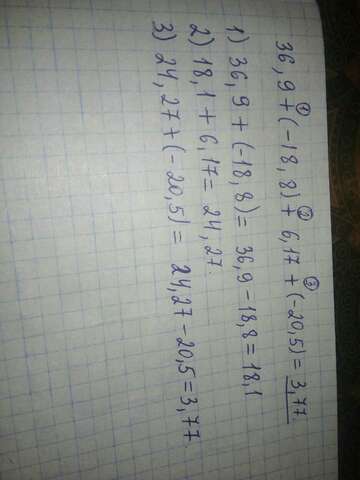 36,9 + (-18,8) + 6,17 + (-20,5) = 3,77.
1) 36,9 + (-18,8) = 36,9 - 18,8 = 18,1
2) 18,1 + 6,17 = 24,27.
3) 24,27 + (-20,5) = 24,27 - 20,5 = 3,77.